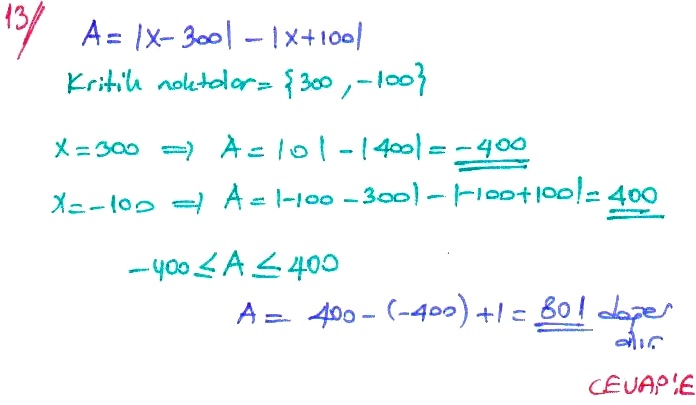 13/
A = |x-300| - |x+100|
Kritik noktalar = {300, -100}
x = 300 ⇒ A = |0| - |400| = -400
x = -100 ⇒ A = |-100 - 300| - |-100+100| = 400
-400 ≤ A ≤ 400
A = 400 - (-400) + 1 = 801 değer
alır.
CEVAP: E